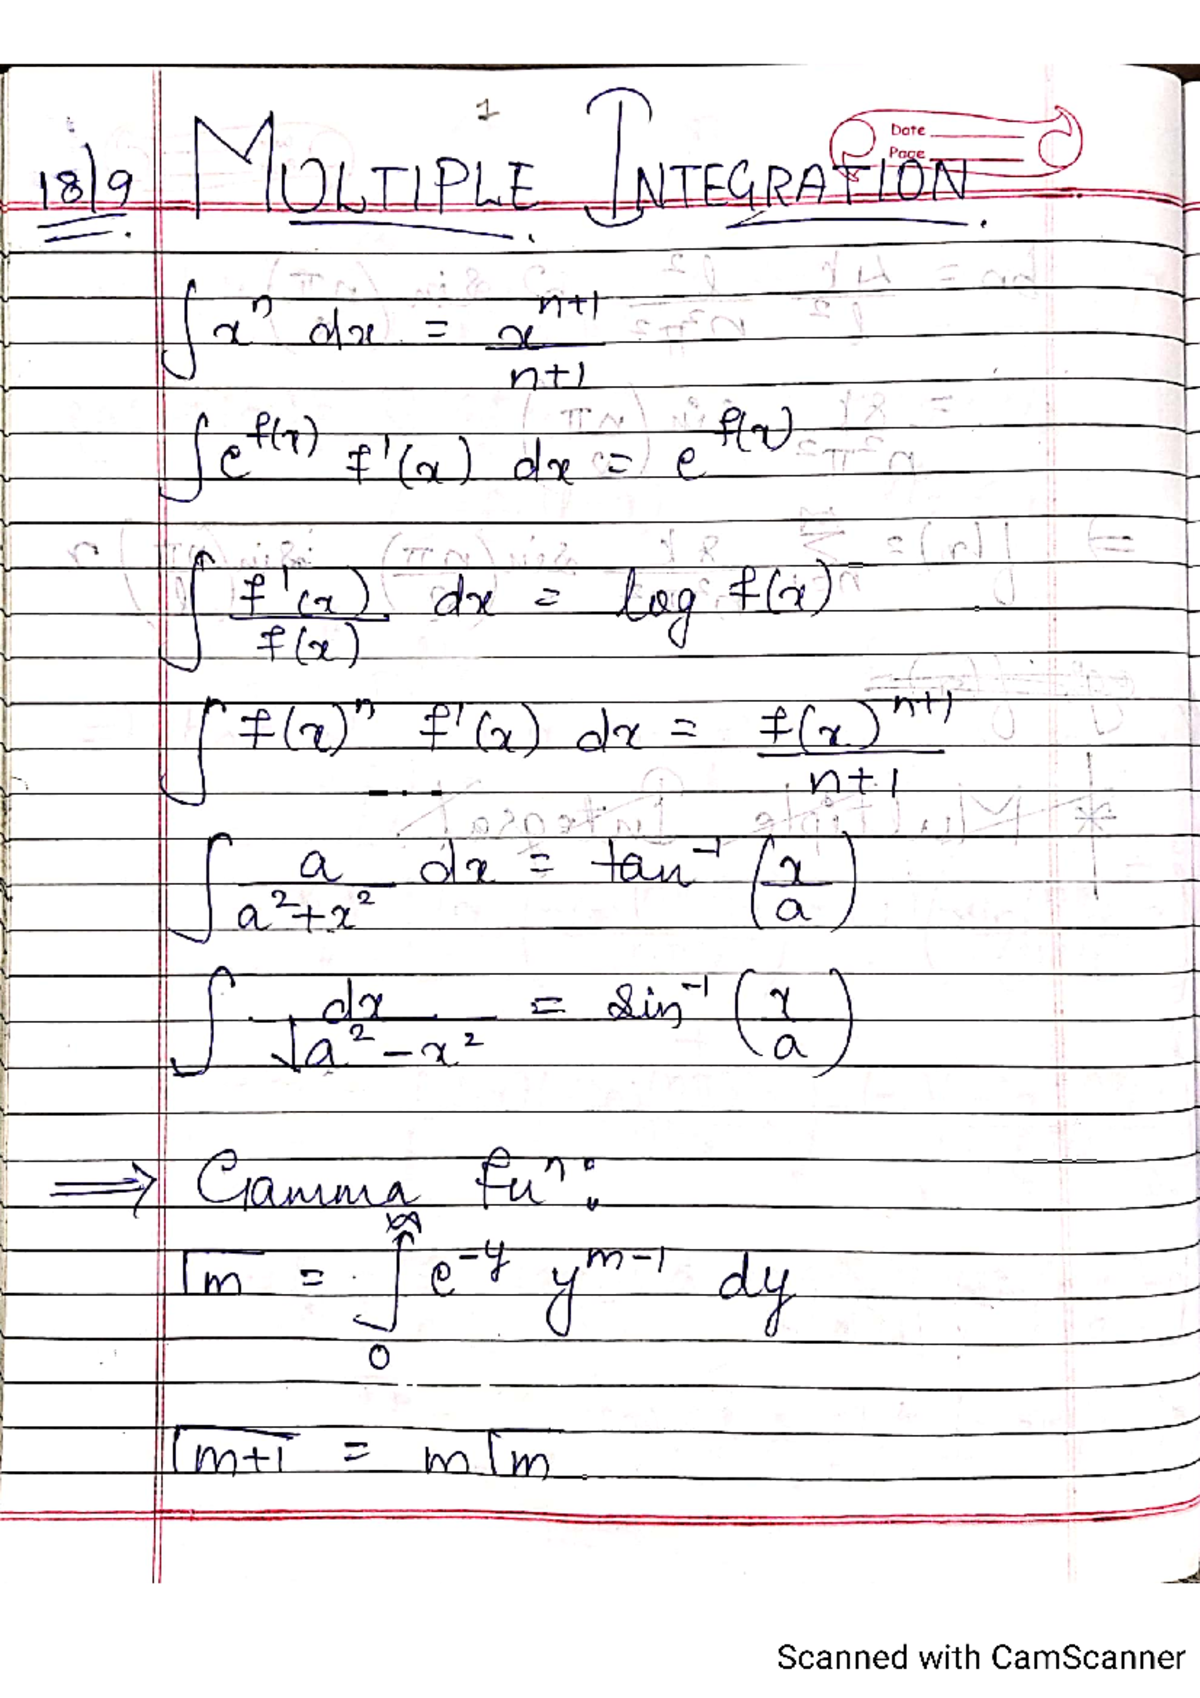 1
Date
Page
18/9 MULTIPLE INTEGRATION.
∫ xⁿ dx = xⁿ⁺¹ / n+1
∫ e^f(x) f'(x) dx = e^f(x)
∫ f'(x) / f(x) dx = log f(x)
∫ f(x)ⁿ f'(x) dx = f(x)ⁿ⁺¹ / n+1
∫ a / a²+x² dx = tan⁻¹ (x/a)
∫ dx / √a²-x² = sin⁻¹ (x/a)
⇒ Gamma fuⁿ:
Γm = ∫₀^∞ e^-y y^m-1 dy
Γm+1 = m Γm
Scanned with CamScanner